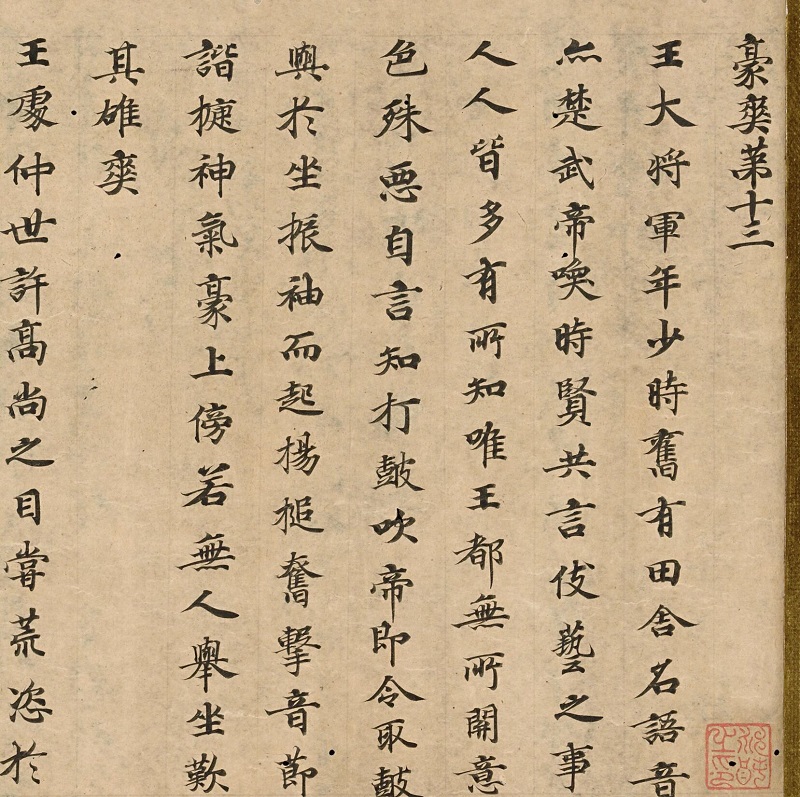 豪爽第十三
王大將軍年少時舊有田舍名語音
亦楚武帝喚時賢共言伎藝之事
人人皆多有所知唯王都無所關意
色殊惡自言知打鼓吹帝即令取鼓
與於坐振袖而起揚槌奮擊音節
諧捷神氣豪上傍若無人舉坐歎
其雄爽
王處仲世許高尚之目嘗荒恣於